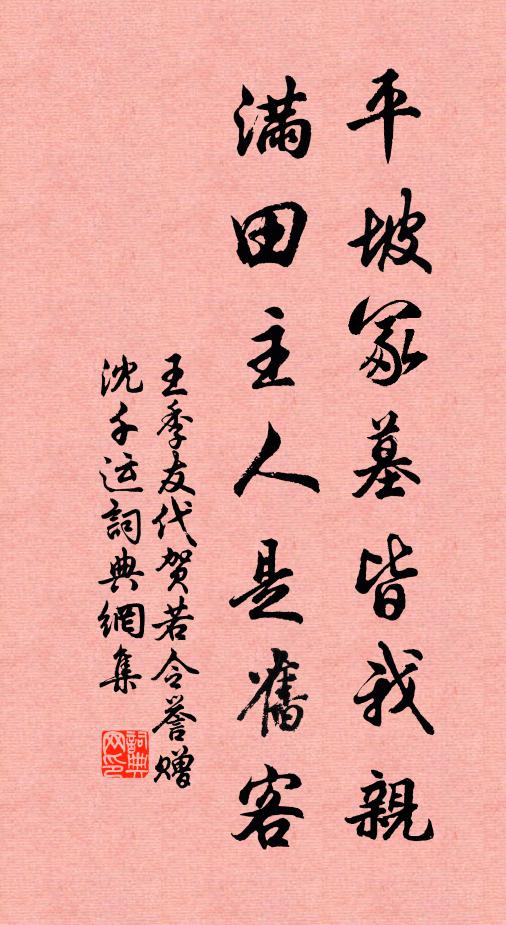 平坡冢墓皆我親
滿田主人是舊客
王季友代賀若令誉贈
沈千运詞典網集
詞典
网印